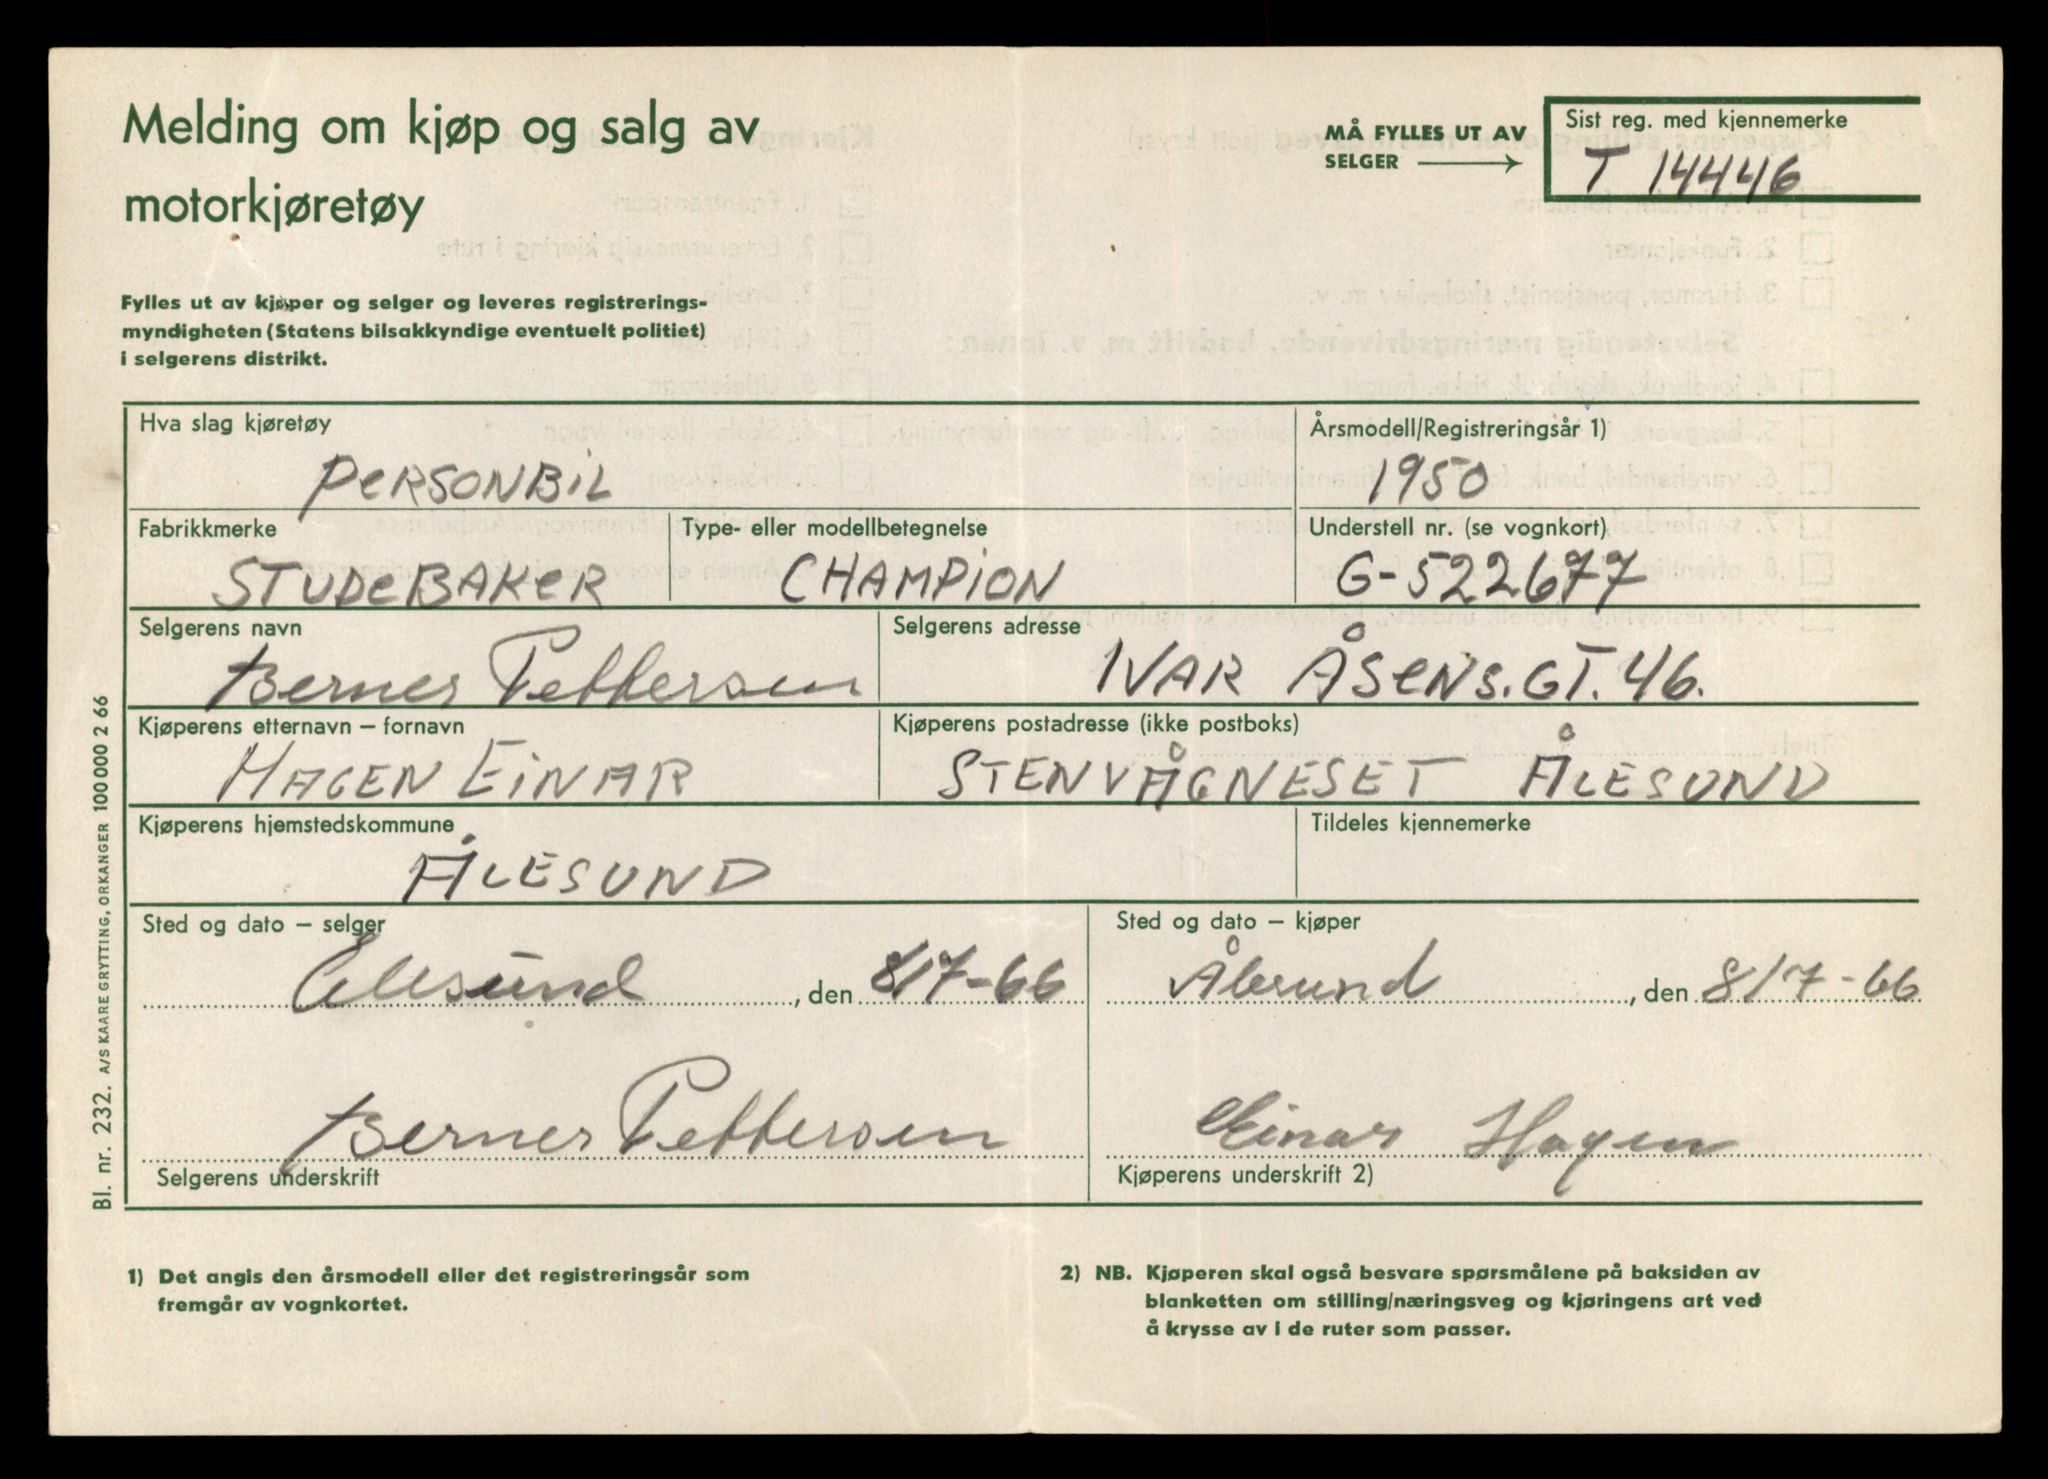 Melding om kjøp og salg av
motorkjøretøy
MÅ FYLLES UT AV
SELGER
Sist reg. med kjennemerke
T 14446
Fylles ut av kjøper og selger og leveres registrerings-
myndigheten (Statens bilsakkyndige eventuelt politiet)
i selgerens distrikt.
Hva slag kjøretøy
PERSONBIL
Årsmodell/Registreringsår 1)
1950
Fabrikkmerke
STUDEBAKER
Type- eller modellbetegnelse
CHAMPION
Understell nr. (se vognkort)
G-522677
Selgerens navn
Berner Pettersen
Selgerens adresse
IVAR ÅSENS.GT.46.
Kjøperens etternavn – fornavn
HAGEN EINAR
Kjøperens postadresse (ikke postboks)
STENVÅGNESET ÅLESUND
Kjøperens hjemstedskommune
ÅLESUND
Tildeles kjennemerke
Sted og dato – selger
, den 8/7-66
Sted og dato – kjøper
Ålesund, den 8/7-66
Berner Pettersen
Selgerens underskrift
Einar Hagen
Kjøperens underskrift 2)
1) Det angis den årsmodell eller det registreringsår som
fremgår av vognkortet.
2) NB. Kjøperen skal også besvare spørsmålene på baksiden av
blanketten om stilling/næringsveg og kjøringens art ved
å krysse av i de ruter som passer.
Bl. nr. 232. A/S KAARE GRYTTING, ORKANGER 100 000 2 66